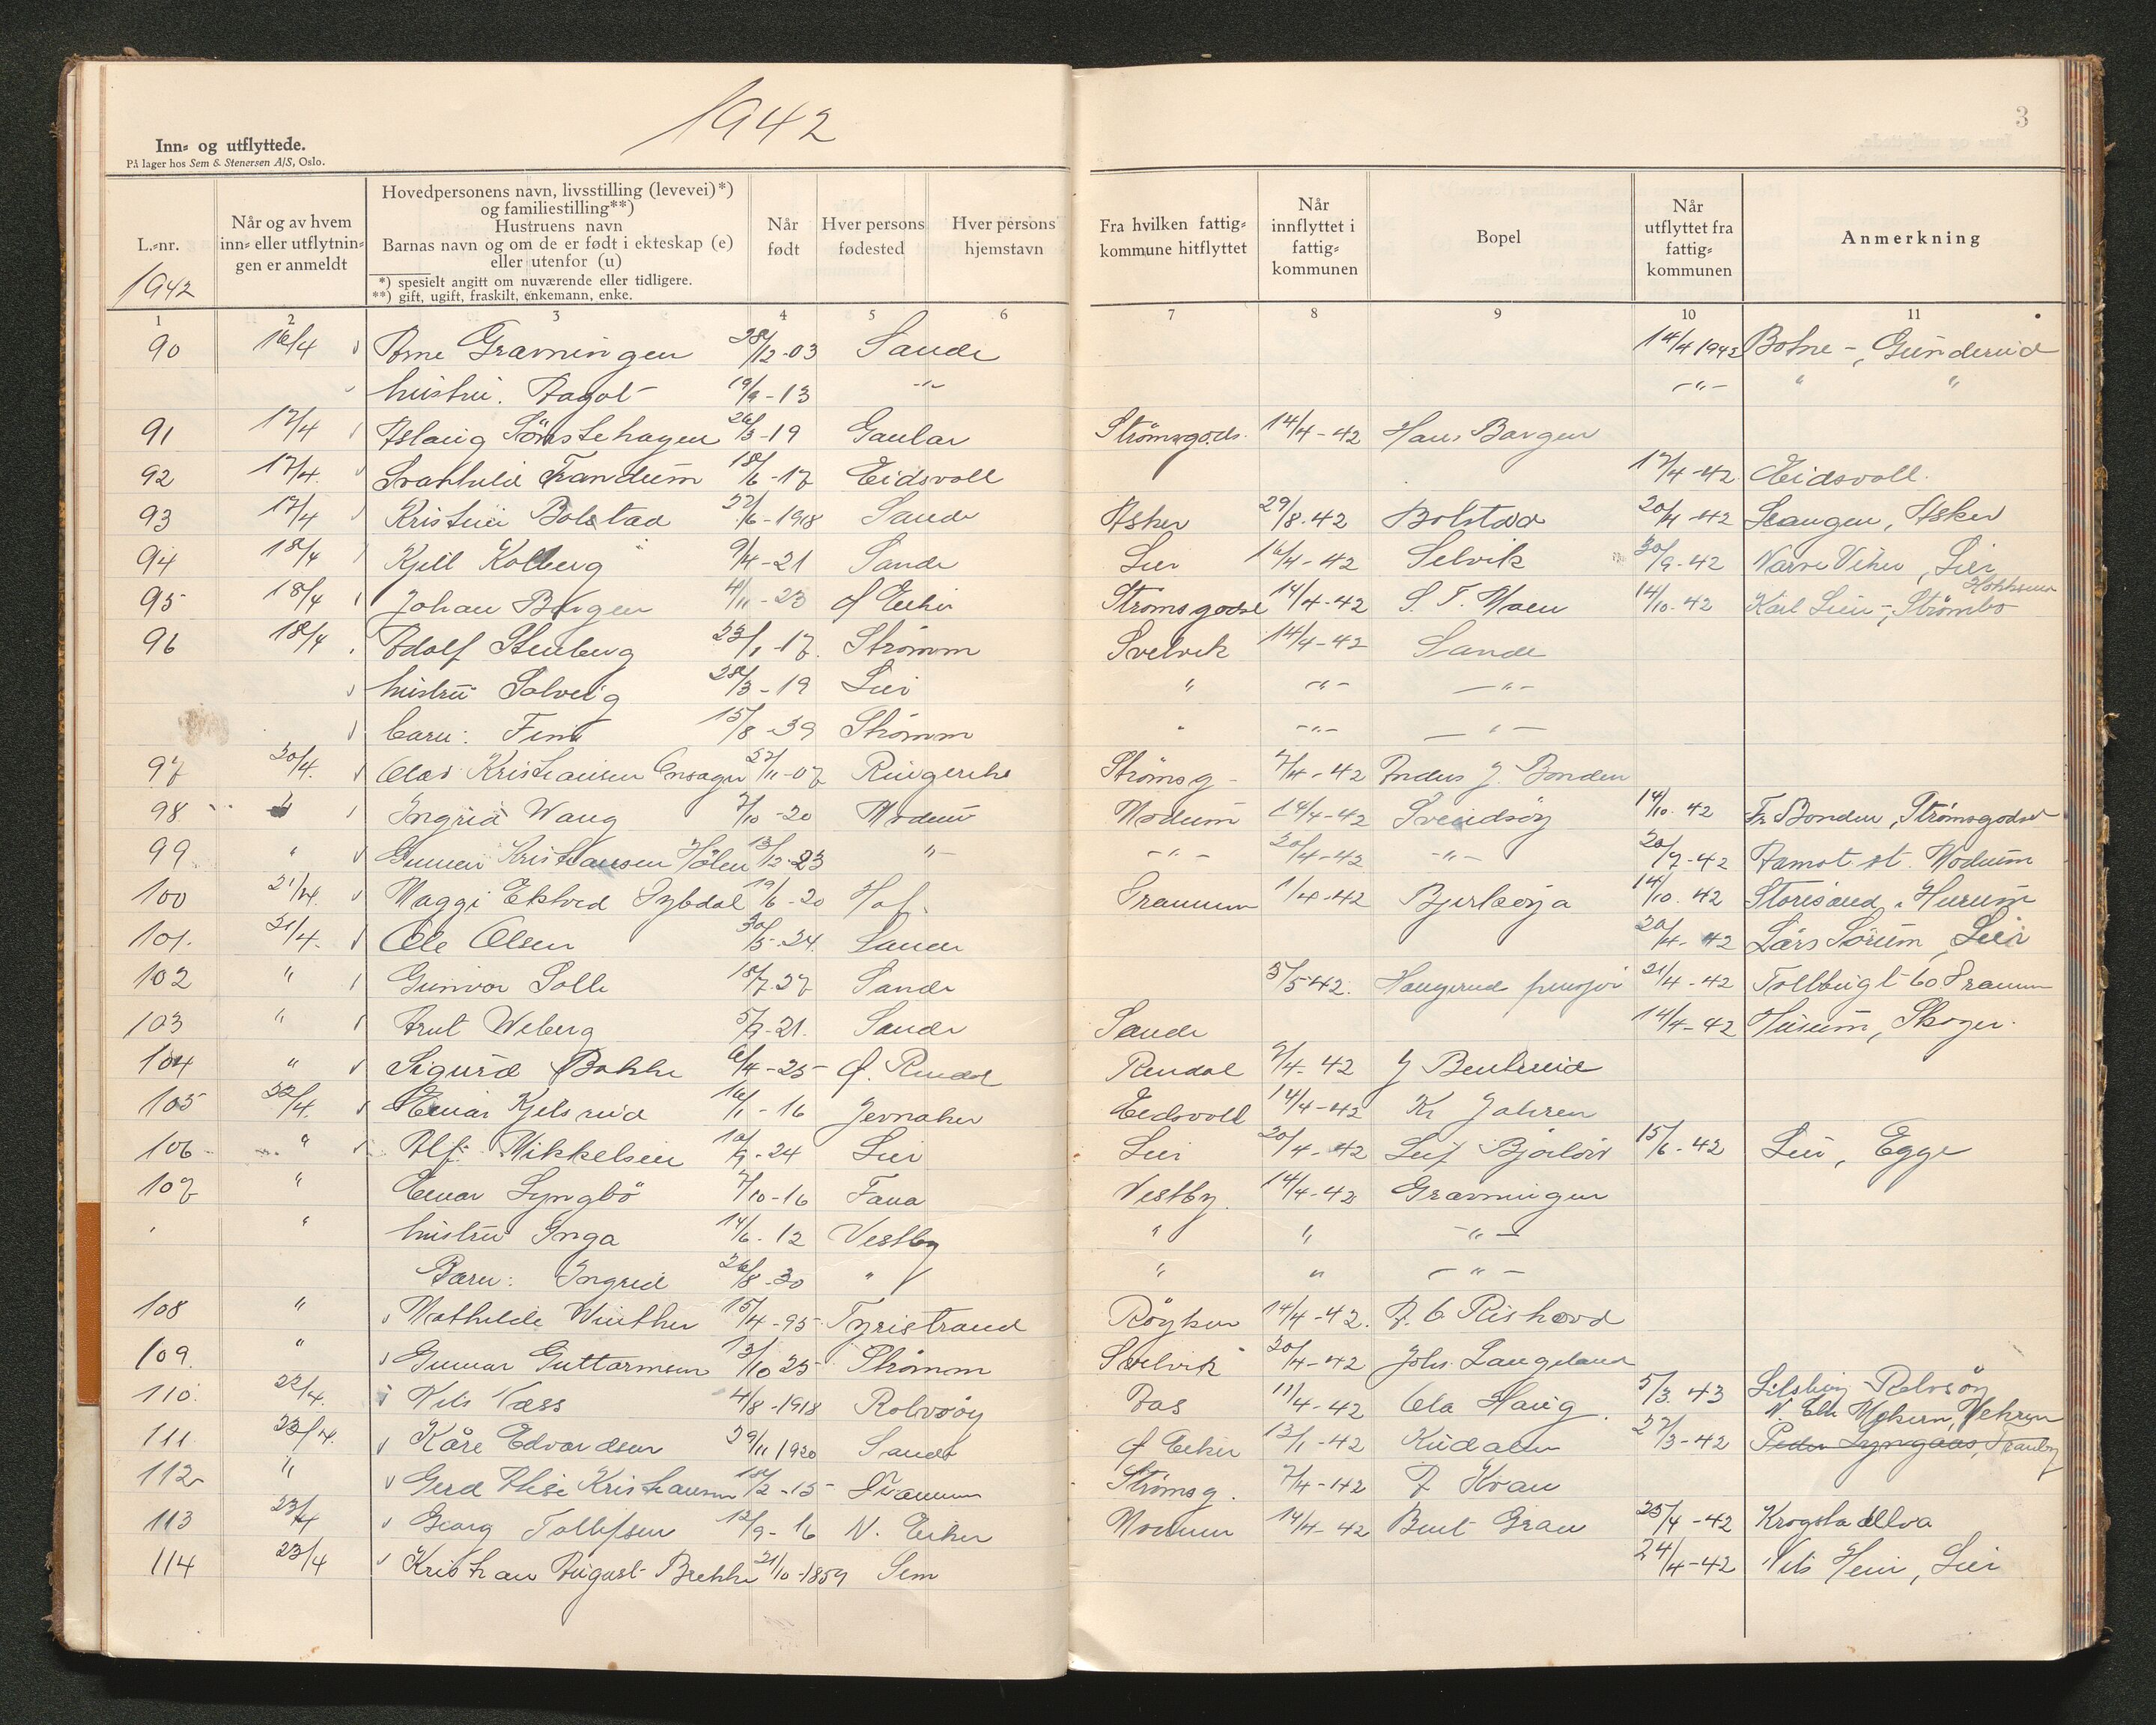 1942
3
Inn- og utflyttede.
På lager hos Sem & Stenersen A/S, Oslo.
L.-nr.
1942
Når og av hvem inn- eller utflytningen er anmeldt
Hovedpersonens navn, livsstilling (levevei)*)
og familiestilling**)
Hustruens navn
Barnas navn og om de er født i ekteskap (e)
eller utenfor (u)
*) spesielt angitt om nuværende eller tidligere.
**) gift, ugift, fraskilt, enkemann, enke.
Når født
Hver persons fødested
Hver persons hjemstavn
Fra hvilken fattigkommune hitflyttet
Når innflyttet i fattigkommunen
Bopel
Når utflyttet fra fattigkommunen
Anmerkning
1 2 3 4 5 6 7 8 9 10 11
90 16/4 Arne Gravningen 28/12-03 Sande 14/4 1942 Botne -, Gunderud
hustru. Aagot 19/9-13 -"- -"- " "
91 17/4 Aslaug Tømtehagen 26/3-19 Gaular Strømsgods. 14/4-42 Hans Bargen
92 17/4. Frandum 18/6-17 Eidsvoll 17/4-42 Eidsvoll.
93 17/4 Bolstad 22/6-1918 Sande Asker 29/8.42 Bolstad 20/4-42 Leangen, Asker
94 18/4 Kjell Kolberg 9/4-21 Sande Lier 16/4-42 Selvik 30/9-42 Narve Viker, Lier
95 18/4 Johan Borgen 4/11-23 Ø Eiker Strømsgodset 14/4-42 S. T. Moen 14/10-42 Karl Lien -, Strømbo Hokksund
96 18/4 Adolf Stenberg 23/1-17. Strømm Svelvik 14/4-42 Sande
hustru Solveig 28/3-19 Lier " -"- -"-
barn: Finn 15/8-39 Strømm " -"- -"-
97 20/4. Olav Kristiansen 27/11-07 Ringerike Strømsg- 7/4-42 Anders J. Bonden
98 " Ingrid Wang 7/10-20 Modum Modum 14/4-42 Svendsøy 14/10.42 Fr. Bonden, Strømsgodset
99 " Gunnar Kristiansen Hølen 13/12-23 "- -"- 20/4-42 -"- 20/7-42 Aamot st. Modum
100 21/4. Maggi Ektved Sybdal 19/6-20 Hof. Drammen 1/4-42 Bjerkøya 14/10.42 Storsand, Hurum
101. 21/4. Ole Olsen 30/5-24. Sande 20/4-42 Lars Sørum, Lier
102 " Gunvor Solli 18/7-27 Sande 3/5 42. Haugerud pensjon 21/4-42 Tollbugt 60 Drammen
103 " Arnt Weberg 5/7-21. Sande Sande 14/4-42 Husum, Skoger.
104 " Sigurd Bakke 6/4-25 Ø. Rendal Rendal 9/4-42 J Bentsrud
105 22/4. Einar Kjelsrud 16/1-16 Jevnaker Eidsvoll 14/4-42 Kr Jahren
106 " Alf Mikkelsen 10/9-24 Lier Lier 20/4-42 Leif Bjørlow 15/6-42 Lier, Egge
107 " Einar Lyngbø 7/10-16 Fana Vestby. 14/4-42 Gravningen
" hustru Inga 14/6-12 Vestby " " -"-
Barn: Ingrid 26/8-30 " " " -"-
108 " Mathilde Winther 15/4-95 Tyristrand Røyken 14/4-42. A. C Rishovd
109. " Gunnar Guttormsen 13/10 25 Strømm Svelvik 20/4-42 Johs. Langeland
110. 22/4. Nils Næss 4/8-1918 Rolvsøy Aas 11/4-42 Ola Haug. 5/3.43 Rolvsøy
111 23/4. Kåre Edvardsen 29/11 1920 Sande Ø Eiker 13/1-42 Kudalen 27/3-42 Peder Lyngaas, Tranby
112 " Gerd Else Kristiansen 18/2-15 Drammen Strømsg. 7/4-42 A Kvan
113 23/4 Georg Tollefsen 12/9-16 N. Eiker Modum 14/4-42 Bent Gran 25/4-42 Krogstadelva
114 23/4 Kristian August Brekke 21/10-1859 Sem 24/4-42 Nils Heia, Lier